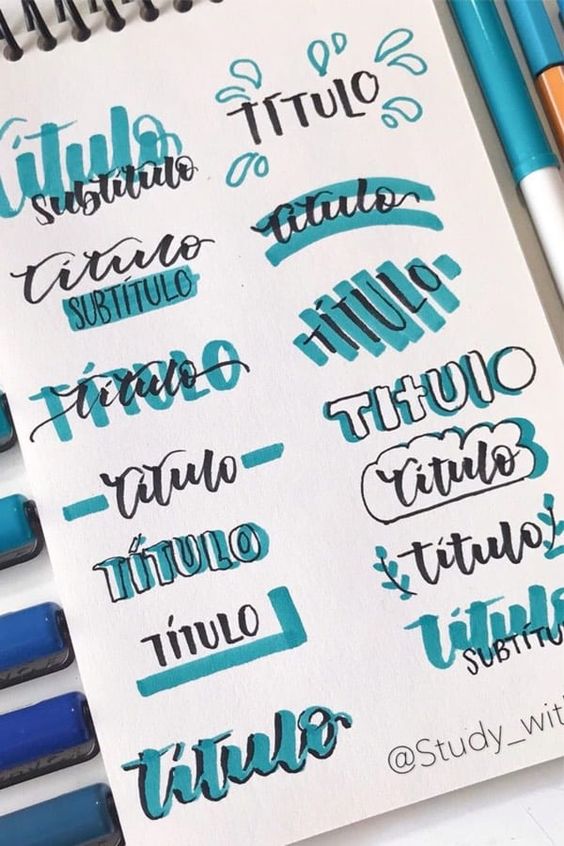 título
subtítulo
título
SUBTÍTULO
TÍTULO
título
título
TÍTULO
TÍTULO
título
TÍTULO
título
TÍTULO
TítUlO
título
título
título
SUBTÍTU
@Study_wit